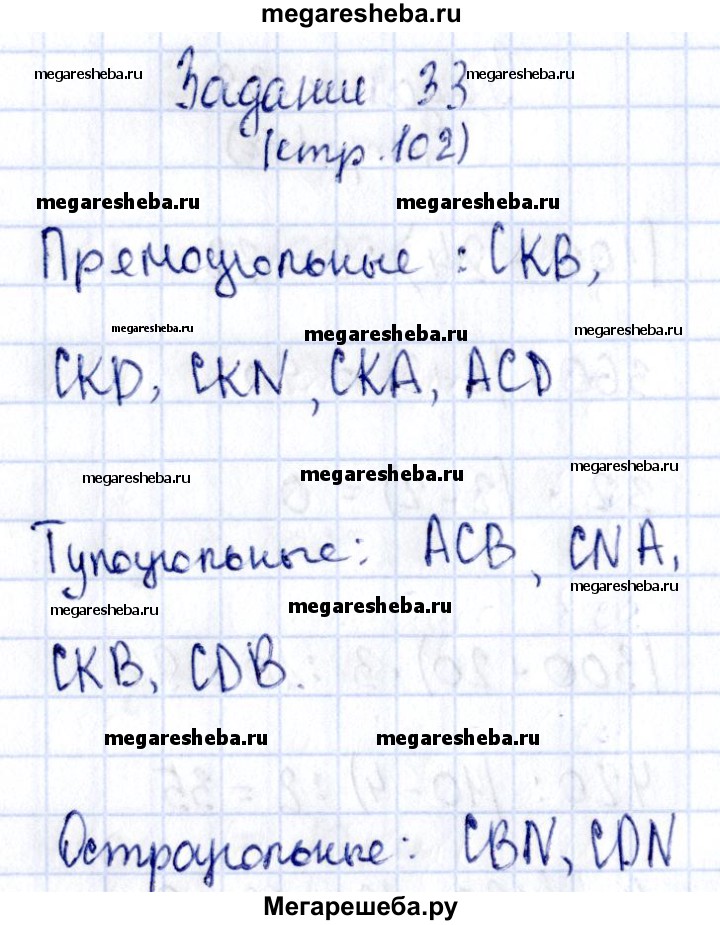 megaresheba.ru
megaresheba.ru megaresheba.ru
Задание 33
(стр. 102)
megaresheba.ru megaresheba.ru
Прямоугольные : CKB,
megaresheba.ru megaresheba.ru megaresheba.ru
CKD, CKN, CKA, ACD
megaresheba.ru megaresheba.ru megaresheba.ru
Тупоугольные: ACB, CNA,
megaresheba.ru megaresheba.ru megaresheba.ru
CKB, CDB.
megaresheba.ru megaresheba.ru
Остроугольные: CBN, CDN
Мегарешеба.ру